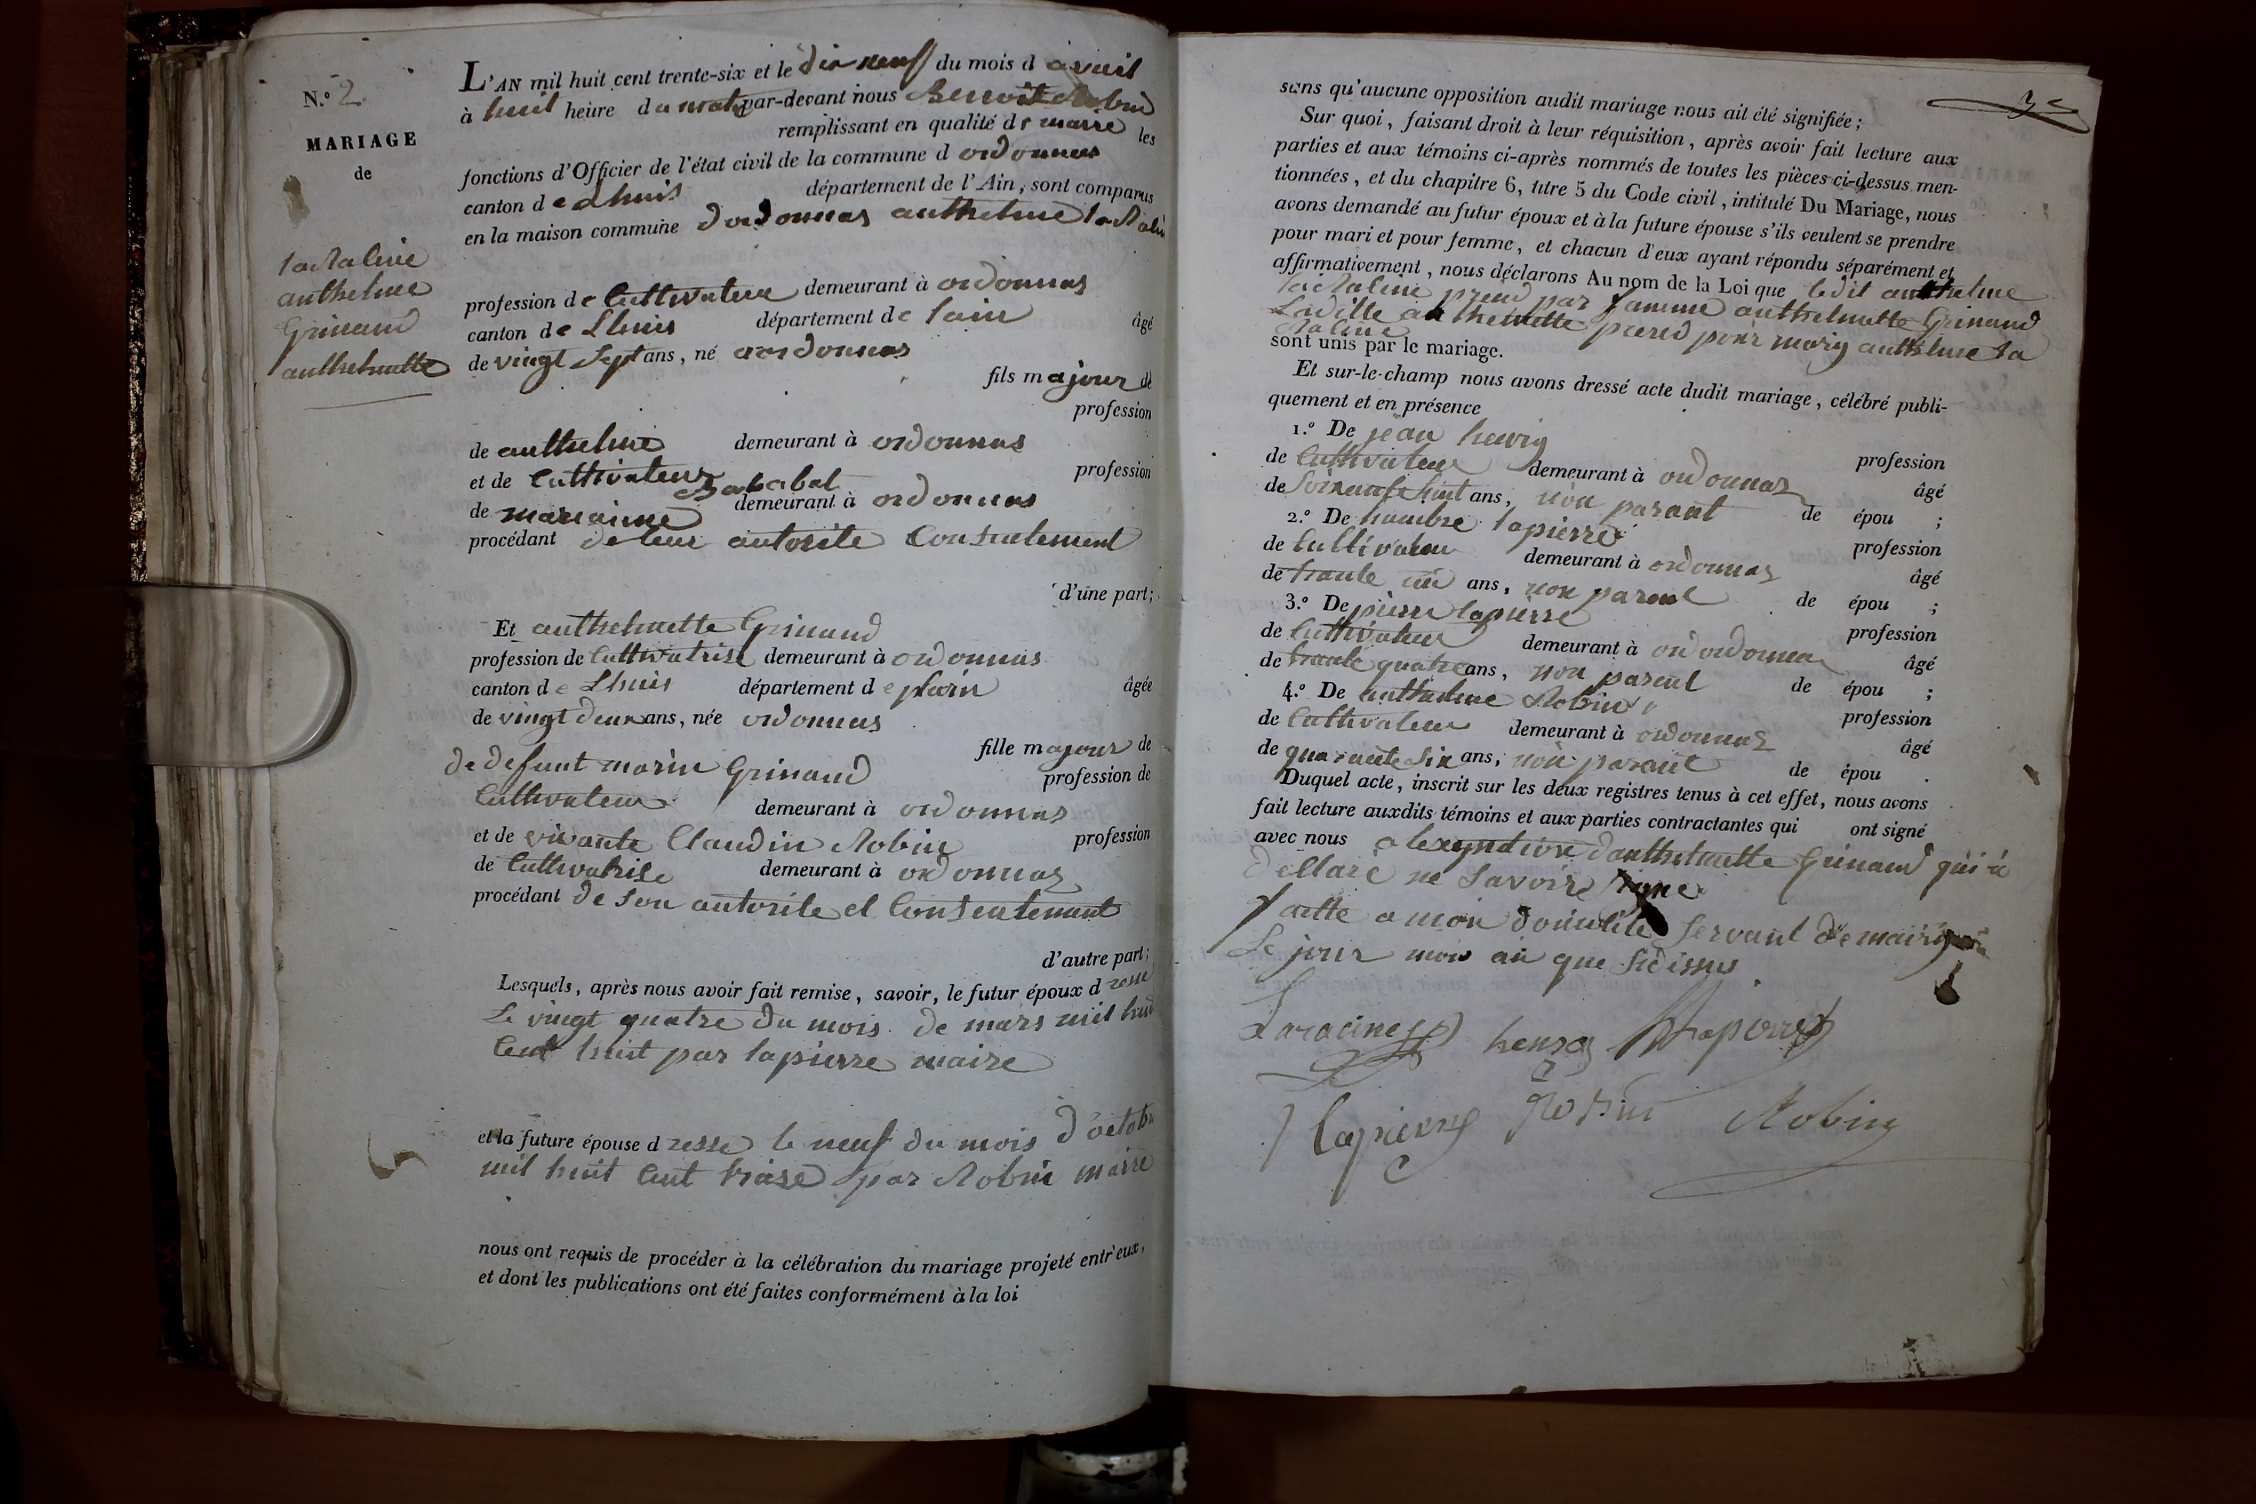 N.º 2
MARIAGE
de
laRaline
anthelme
Grinand
anthelmette
L'AN mil huit cent trente-six et le dix neuf du mois d avril
à huit heure du matin par-devant nous Benoit Robin
remplissant en qualité de maire les
fonctions d'Officier de l'état civil de la commune d ordonnas
canton de Lhuis département de l'Ain, sont comparus
en la maison commune dordonnas anthelme laRalin
profession de Cultivateur demeurant à ordonnas
canton de Lhuis département de lain âgé
de vingt Sept ans, né a ordonnas
fils majeur de
profession
de anthelme demeurant à ordonnas
et de Cultivateur profession
de marianne Barbabet demeurant à ordonnas
procédant de leur autorite Consentement
d'une part;
Et anthelmette Grinand
profession de Cultivatrise demeurant à ordonnas
canton de Lhuis département de âgée
de vingt deux ans, née ordonnas
fille majeur de
de defunt marin Grinand profession de
Cultivateur demeurant à ordonnas
et de vivante Claudin Robin profession
de Cultivatrise demeurant à ordonnas
procédant de son autorite et Consentement
d'autre part;
Lesquels, après nous avoir fait remise, savoir, le futur époux d resse
Le vingt quatre du mois de mars mil huit
Cent huit par lapierre maire
et la future épouse d resse le neuf du mois d'octobre
mil huit Cent traise par Robin maire
nous ont requis de procéder à la célébration du mariage projeté entr'eux,
et dont les publications ont été faites conformément à la loi
sans qu'aucune opposition audit mariage nous ait été signifiée;
Sur quoi, faisant droit à leur réquisition, après avoir fait lecture aux
parties et aux témoins ci-après nommés de toutes les pièces ci-dessus men-
tionnées, et du chapitre 6, titre 5 du Code civil, intitulé Du Mariage, nous
avons demandé au futur époux et à la future épouse s'ils veulent se prendre
pour mari et pour femme, et chacun d'eux ayant répondu séparément et
affirmativement, nous déclarons Au nom de la Loi que ledit anthelme
laRaline prend par famme anthelmette Grinand
Ladille anthelmette prend pour mary anthelme la
Raline
sont unis par le mariage.
Et sur-le-champ nous avons dressé acte dudit mariage, célébré publi-
quement et en présence
1.º De jean henrig
de Cultivateur demeurant à ordonnas profession
de Soixante huit ans, non parant âgé
de épou ;
2.º De hambre lapierre
de Cultivateur demeurant à ordonnas profession
de trante un ans, non parent âgé
de épou ;
3.º De pierre lapierre
de Cultivateur demeurant à ordordonna profession
de trante quatre ans, non parent âgé
de épou ;
4.º De anthelme Robin
de Cultivateur demeurant à ordonnas profession
de quarante six ans, non parant âgé
de épou .
Duquel acte, inscrit sur les deux registres tenus à cet effet, nous avons
fait lecture auxdits témoins et aux parties contractantes qui ont signé
avec nous danthelmette Grinand qui a
dellaré ne savoire signe
faitte a mon domicile servant de mairi
Le jour mois an que sidessus
Laracine henry Lapierre
lapierre Robin Robin